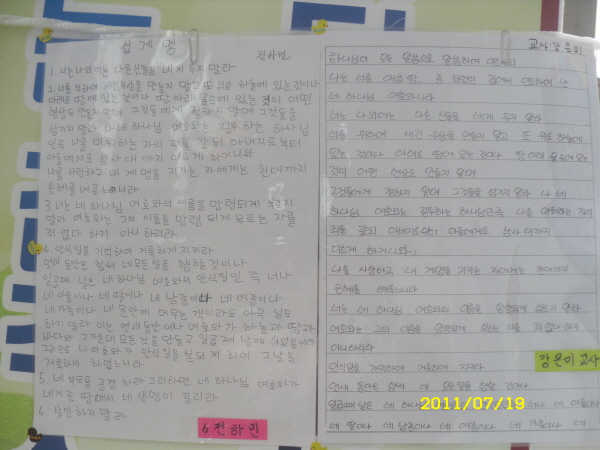 십계명
전하민
1. 너는 나 외에는 다른 신들을 네게 두지 말라
2. 너를 위하여 새긴 우상을 만들지 말고 또 위로 하늘에 있는 것이나
아래로 땅에 있는 것이나 땅 아래 물속에 있는 것의 어떤
형상도 만들지 말며 그것들에게 절하지 말며 그것들을
섬기지 말라 나 네 하나님 여호와는 질투하는 하나님
인즉 나를 미워하는 자의 죄를 갚되 아버지로부터
아들에게로 삼사 대까지 이르게 하거니와
나를 사랑하고 내 계명을 지키는 자에게는 천대까지
은혜를 베푸느니라
3. 너는 네 하나님 여호와의 이름을 망령되게 부르지
말라 여호와는 그의 이름을 망령되게 부르는 자를
죄 없다 하지 아니하리라
4. 안식일을 기억하여 거룩하게 지키라
엿새 동안은 힘써 네 모든 일을 행할 것이나
일곱째 날은 네 하나님 여호와의 안식일인 즉 너나
네 아들이나 네 딸이나 네 남종이나 네 여종이나
네 가축이나 네 문안에 머무는 객이라도 아무 일도
하지 말라 이는 엿새 동안에 나 여호와가 하늘과 땅과
바다와 그 가운데 모든 것을 만들고 일곱째 날에 쉬었음이라
그러므로 나 여호와가 안식일을 복되게 하여 그 날을
거룩하게 하였느니라
5. 네 부모를 공경하라 그리하면 네 하나님 여호와가
네게 준 땅에서 네 생명이 길리라
6. 살인하지 말라
6 전하민
교사 강은미
하나님이 모든 말씀으로 말씀하여
나는 너를 애굽 땅, 종 되었던 집에서 인도하여 낸
네 하나님 여호와니라
너는 나 외에는 다른 신들을 네게 두지 말라
너를 위하여 새긴 우상을 만들지 말고 또 위로 하늘에
있는 것이나 아래로 땅에 있는 것이나 땅 아래 물속에 있는
것의 어떤 형상도 만들지 말며
그것들에게 절하지 말며 그것들을 섬기지 말라 나 네
하나님 여호와는 질투하는 하나님인즉 나를 미워하는 자의
죄를 갚되 아버지로부터 아들에게로 삼사 대까지
이르게 하거니와
나를 사랑하고 내 계명을 지키는 자에게는 천대까지
은혜를 베푸느니라
너는 네 하나님 여호와의 이름을 망령되게 부르지 말라
여호와는 그의 이름을 망령되게 부르는 자를 죄 없다 하지
아니하리라
안식일을 기억하여 거룩하게 지키라
엿새 동안은 힘써 네 모든 일을 행할 것이나
일곱째 날은 네 하나 너나 네 아들이나
네 딸이나 네 남종이나 네 여종이나 네 가축이나 네
강은미 교사
2011/07/19